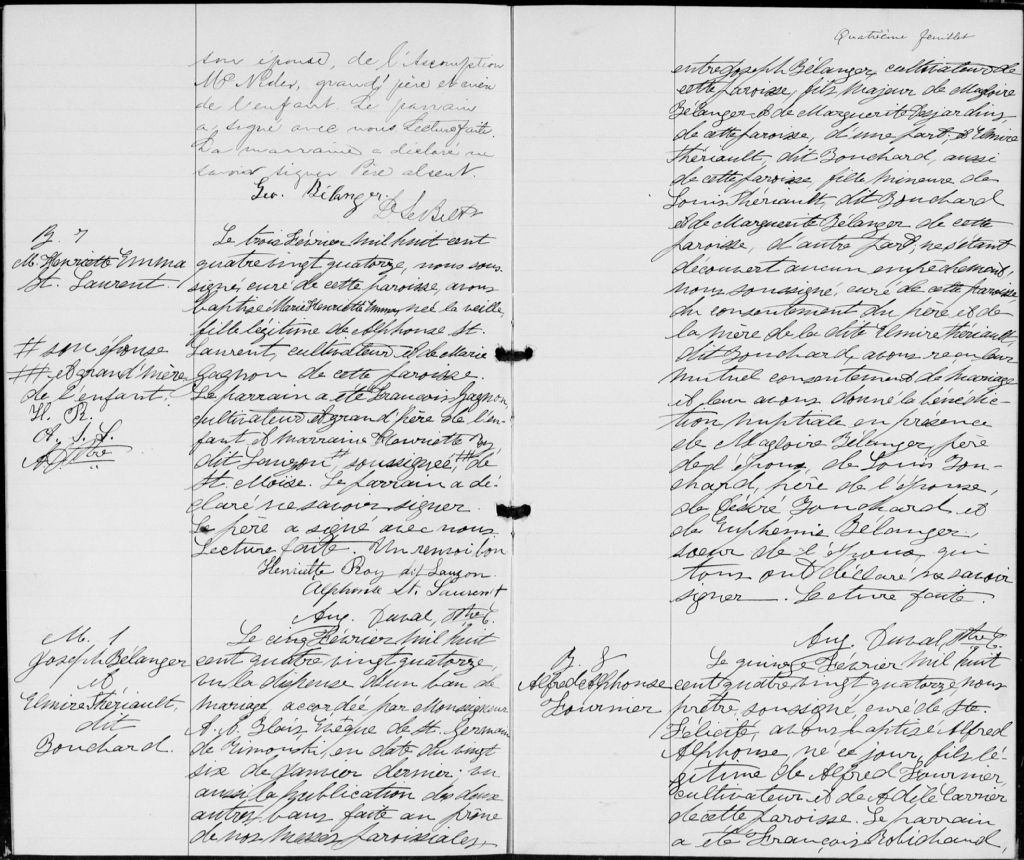 son épouse, de l'Assomption
McNider, grand'père et
de l'enfant. Le parrain
a signé avec nous Lecture faite.
La marraine a déclaré ne
savoir signer Père absent.
Geo. Bélanger
B. 7
M. Henriette Emma
St. Laurent
Le trois Février mil huit cent
quatre vingt quatorze, nous sous-
signé, curé de cette paroisse, avons
baptisé Marie Henriette Emma, née la veille,
fille légitime de Alphonse St.
Laurent, cultivateur et de Marie
Gagnon de cette paroisse.
Le parrain a été François Gagnon
cultivateur et grand'père de l'en-
fant et marraine Henriette Roy
dit Lauzon # soussignée, ## de
St. Moïse. Le parrain a dé-
claré ne savoir signer.
Le père a signé avec nous.
Lecture faite. Un renvoi bon
# son épouse
## et grand'mère
de l'enfant.
H. R.
A. S. L.
Henriette Roy dit Lauzon.
Alphonse St. Laurent
Aug. Duval, Ptre C.
M. 1
Joseph Bélanger
et
Elmire Thériault,
dit
Bouchard.
Le cinq Février mil huit
cent quatre vingt quatorze,
vu la dispense d'un ban de
mariage, accordée par Monseigneur
A. A. Blais, Evêque de St. Germain
de Rimouski, en date du vingt
six de Janvier dernier; vu
aussi la publication des deux
autres bans faite au prône
de nos messes paroissiales,
Quatrième feuillet
entre Joseph Bélanger, cultivateur de
cette paroisse, fils majeur de Magloire
Bélanger et de Marguerite Desjardins,
de cette paroisse, d'une part, et Elmire
Thériault, dit Bouchard, aussi
de cette paroisse, fille mineure de
Louis Thériault, dit Bouchard
et de Marguerite Bélanger de cette
paroisse, d'autre part, ne s'étant
découvert aucun empêchement,
nous soussigné, curé de cette paroisse
du consentement du père et de
la mère de la dite Elmire Thériault,
dit Bouchard, avons reçu leur
mutuel consentement de mariage
et leur avons donné la bénédic-
tion nuptiale en présence
de Magloire Bélanger, père
de l'époux, de Louis Bou-
chard, père de l'épouse,
de Désiré Bouchard et
de Euphémie Bélanger,
soeur de l'époux, qui
tous ont déclaré ne savoir
signer. Lecture faite.
Aug. Duval, Ptre C.
B. 8
Alfred Alphonse
Fournier
Le quinze Février mil huit
cent quatre vingt quatorze nous
prêtre soussigné, curé de Ste.
Félicité, avons baptisé Alfred
Alphonse, né ce jour, fils lé-
gitime de Alfred Fournier,
cultivateur et de Adèle Carrier
de cette paroisse. Le parrain
a été François Robichaud,